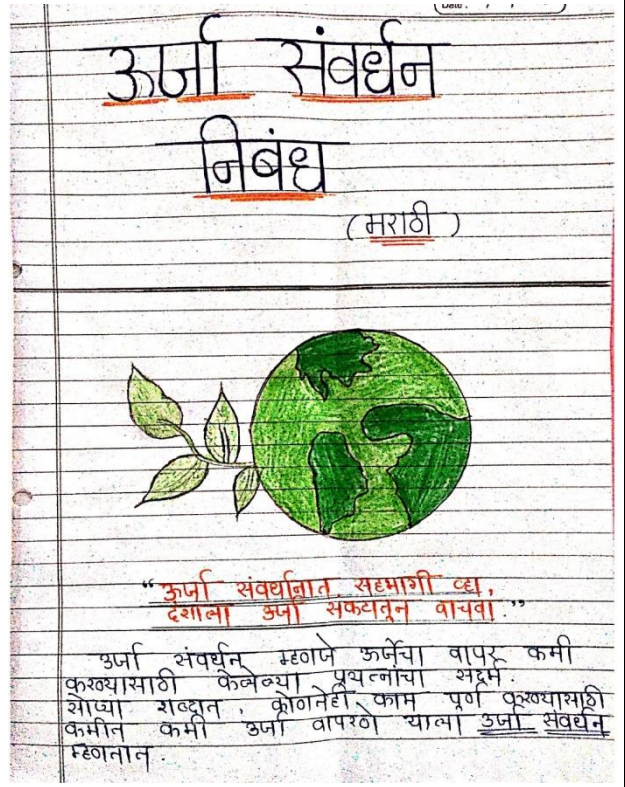 Date : / /
ऊर्जा संवर्धन
निबंध
( मराठी )
“ ऊर्जा संवर्धानात सहभागी व्हा,
देशाला ऊर्जा संकटातून वाचवा. ”
ऊर्जा संवर्धन म्हणजे ऊर्जेचा वापर कमी
करण्यासाठी केलेल्या प्रयत्नांचा संदर्भ.
सोप्या शब्दात, कोणतेही काम पूर्ण करण्यासाठी
कमीत कमी ऊर्जा वापरणे याला ऊर्जा संवर्धन
म्हणतात.